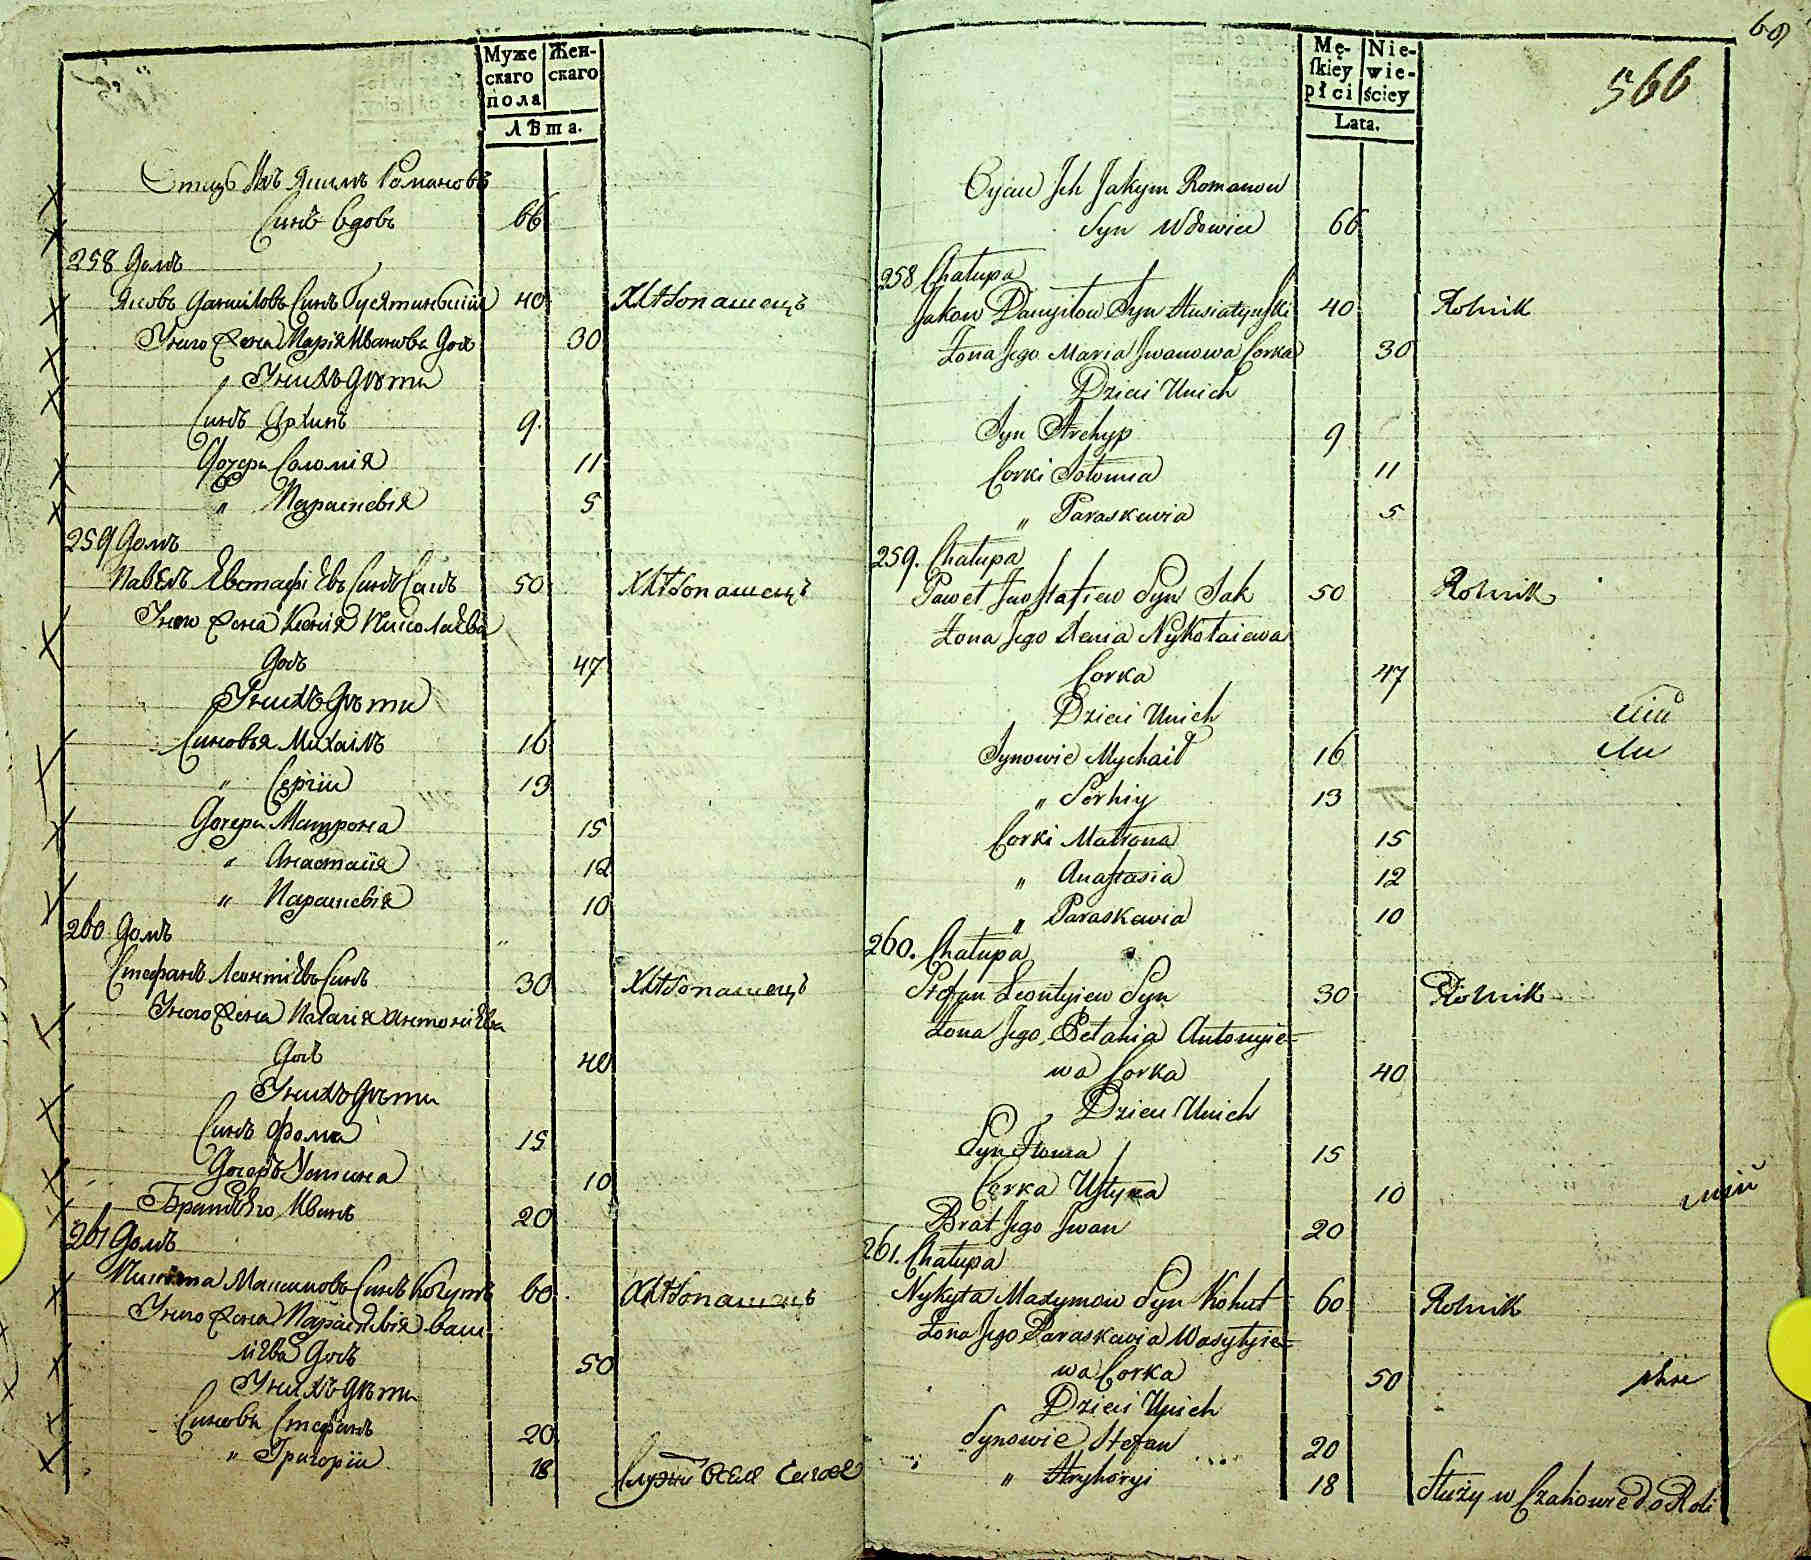 Муже
скаго
пола
Жен-
скаго
Лѣта.
Отецъ Ихъ Якимъ Романовъ
Синъ вдовъ 66
258 Домъ
Яковъ Даниловъ Синъ Гусятинскій 40 Хлѣбопашецъ
У него жена Марія Иванова Доч 30
У нихъ Дѣти
Синъ Архипъ 9.
Дочери Соломія 11
" Параскевія 5
259 Домъ
Павелъ Евстафіевъ Синъ Сакъ 50 Хлѣбопашецъ
У него жена Ксенія Николаева
Доч 47
У нихъ Дѣти
Синовья Михаилъ 16
" Сергіи 13
Дочери Матрона 15
" Анастасія 12
" Параскевія 10
260 Домъ
Стефанъ Леонтіевъ Синъ 30 Хлѣбопашецъ
У него жена Палагія Антоніева
Доч 40
У нихъ Дѣти
Синъ Фома 15
Дочеръ Устина 10
Братъ Его Иванъ 20
261 Домъ
Никита Максимовъ Синъ Когутъ 60 Хлѣбопашецъ
У него жена Параскевія Васи
ліева Доч 50
У нихъ Дѣти
Синовя Стефанъ 20
" Григоріи 18
60
566
Mę-
skiey
płci
Nie-
wie-
ściey
Lata.
Oyciec Ich Jakym Romanow
Syn Wdowiec 66
258 Chałupa
Jakow Danyiłow Syn Husiatynski 40 Rolnik
Żona Jego Maria Iwanowa Corka 30
Dzieci Unich
Syn Archyp 9
Corki Sołomia 11
" Paraskewia 5
259. Chałupa
Paweł Jwstafiew Syn Sak 50 Rolnik
Żona Jego Xenia Nykołaiewa
Corka 47
Dzieci Unich
Synowie Mychaił 16
" Serhiy 13
Corki Matrona 15
" Anastasia 12
" Paraskewia 10
260. Chałupa
Stefan Leontyiew Syn 30 Rolnik
Żona Jego Pełahia Antonyie-
wa Corka 40
Dzieci Unich
Syn Foma 15
Corka Ustyna 10
Brat Jego Iwan 20
261. Chałupa
Nykyta Maxymow Syn Kohut 60 Rolnik
Żona Jego Paraskewia Wasylyie-
wa Corka 50
Dzieci Unich
Synowie Stefan 20
" Hryhoryi 18 Służy w Czahowie do Roli